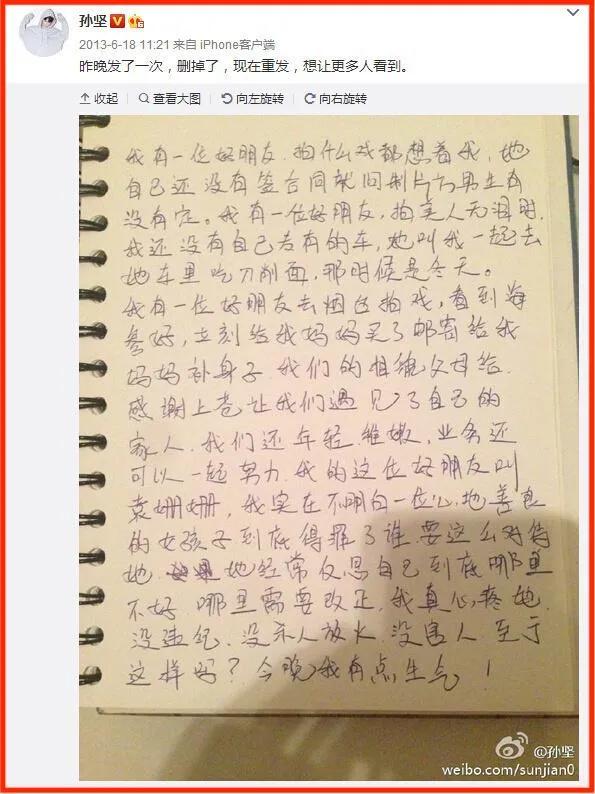 孙坚
2013-6-18 11:21 来自 iPhone客户端
昨晚发了一次，删掉了，现在重发，想让更多人看到。
收起 查看大图 向左旋转 向右旋转
我有一位好朋友.拍什么戏都想着我,她
自己还没有签合同就问制片方男生有
没有定。我有一位好朋友,拍美人无泪时.
我还没有自己专有的车,她叫我一起去
她车里吃刀削面,那时候是冬天。
我有一位好朋友去烟台拍戏,看到海
参好,立刻给我妈妈买了邮寄给我
妈妈补身子.我们的相貌父母给.
感谢上苍让我们遇见了自己的
家人.我们还年轻稚嫩,业务还
可以一起努力.我的这位好朋友叫
袁姗姗,我实在不明白一位心地善良
的女孩子到底得罪了谁.要这么对待
她.她经常反思自己到底哪里
不好.哪里需要改正,我真心疼她.
没违纪.没杀人放火.没害人.至于
这样吗?今晚我有点生气!
@孙坚
weibo.com/sunjian0